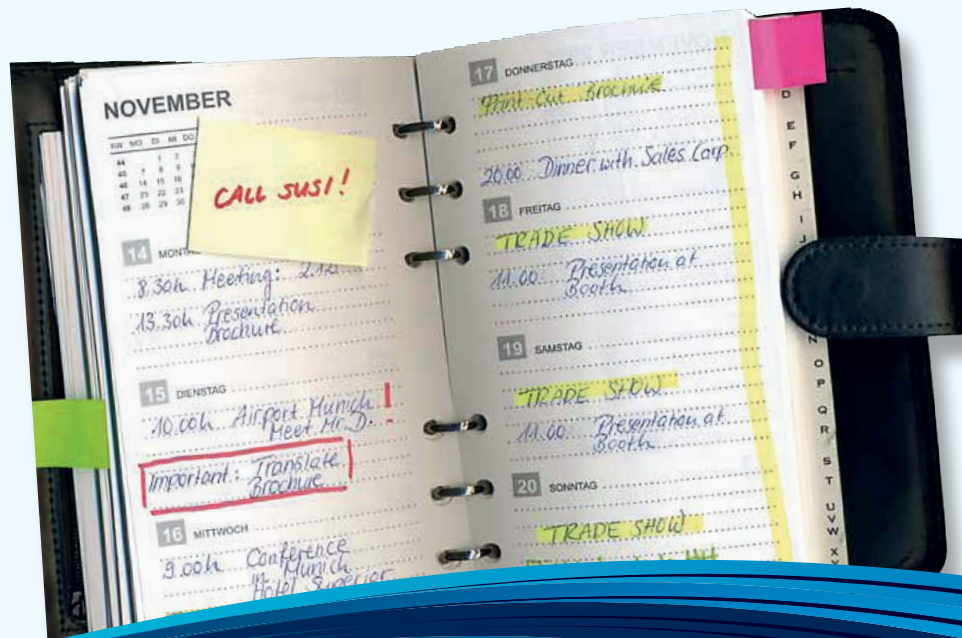 NOVEMBER
KW MO DI MI DO
44 1 2
45 7 8 9
46 14 15 16
47 21 22 23
48 28 29 30
CALL SUSI!
14
8.30h Meeting:
13.30h Presentation
Brochure
15 DIENSTAG
10.00h Airport Munich !
Meet Mr. D.
Important: Translate
Brochure
16 MITTWOCH
9.00h Conference
Munich
Hotel Superior
17 DONNERSTAG
Print Out Brochure
20.00 Dinner with Sales Corp.
18 FREITAG
TRADE SHOW
11.00 Presentation at
Booth
19 SAMSTAG
TRADE SHOW
11.00 Presentation at
Booth
20 SONNTAG
TRADE SHOW
D
E
F
G
H
I
J
N
O
P
Q
R
S
T
U
VW
X